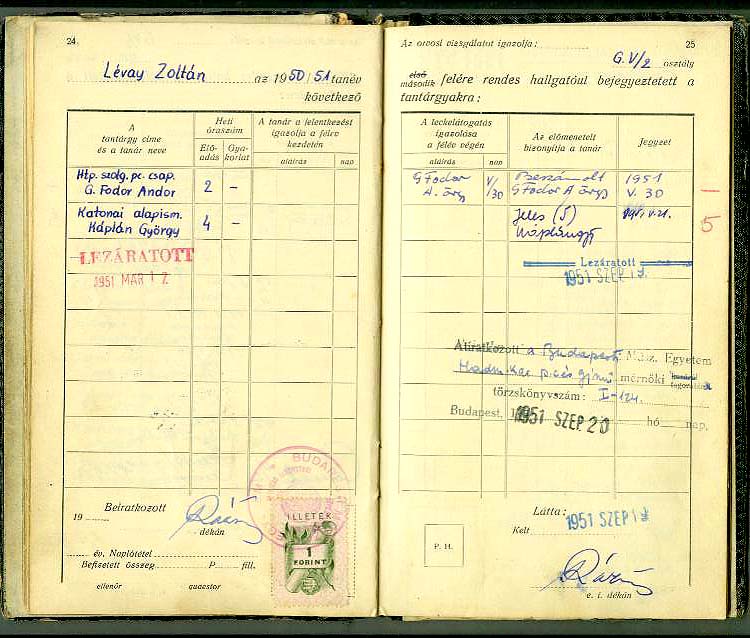 24
Lévay Zoltán az 1950/51 tanév
következő
A
tantárgy címe
és a tanár neve
Heti
óraszám
Elő-
adás
Gya-
korlat
A tanár a jelentkezést
igazolja a félév
kezdetén
aláírás
nap
Htp. szolg. pc. csap.
G. Fodor Andor
2 –
Katonai alapism.
Káplán György
4 –
LEZÁRATOTT
1951 MAR 17.
Beiratkozott
19
dékán
BUDAPE
ILLETÉK
1
FORINT
év. Naplótétel
Befizetett összeg P fill.
ellenőr quaestor
Az orvosi vizsgálatot igazolja: 25
G.V/2 osztály
első
második felére rendes hallgatóul bejegyeztetett a
tantárgyakra:
A leckelátogatás
igazolása
a félév végén
aláírás
nap
Az előmenetelt
bizonyítja a tanár
Jegyzet
GFodor
A. őrgy
V/
30
Beszámolt
GFodor A őrgy
1951
V. 30
–
Jeles (5)
5
Lezáratott
1951 SZEP
Átiratkozott a Budapesti Műsz. Egyetem
mérnöki
törzskönyvszám: I-124.
Budapest, 1951 SZEP 20 hó nap.
Látta:
Kelt 1951 SZEP
P. H.
e. i. dékán